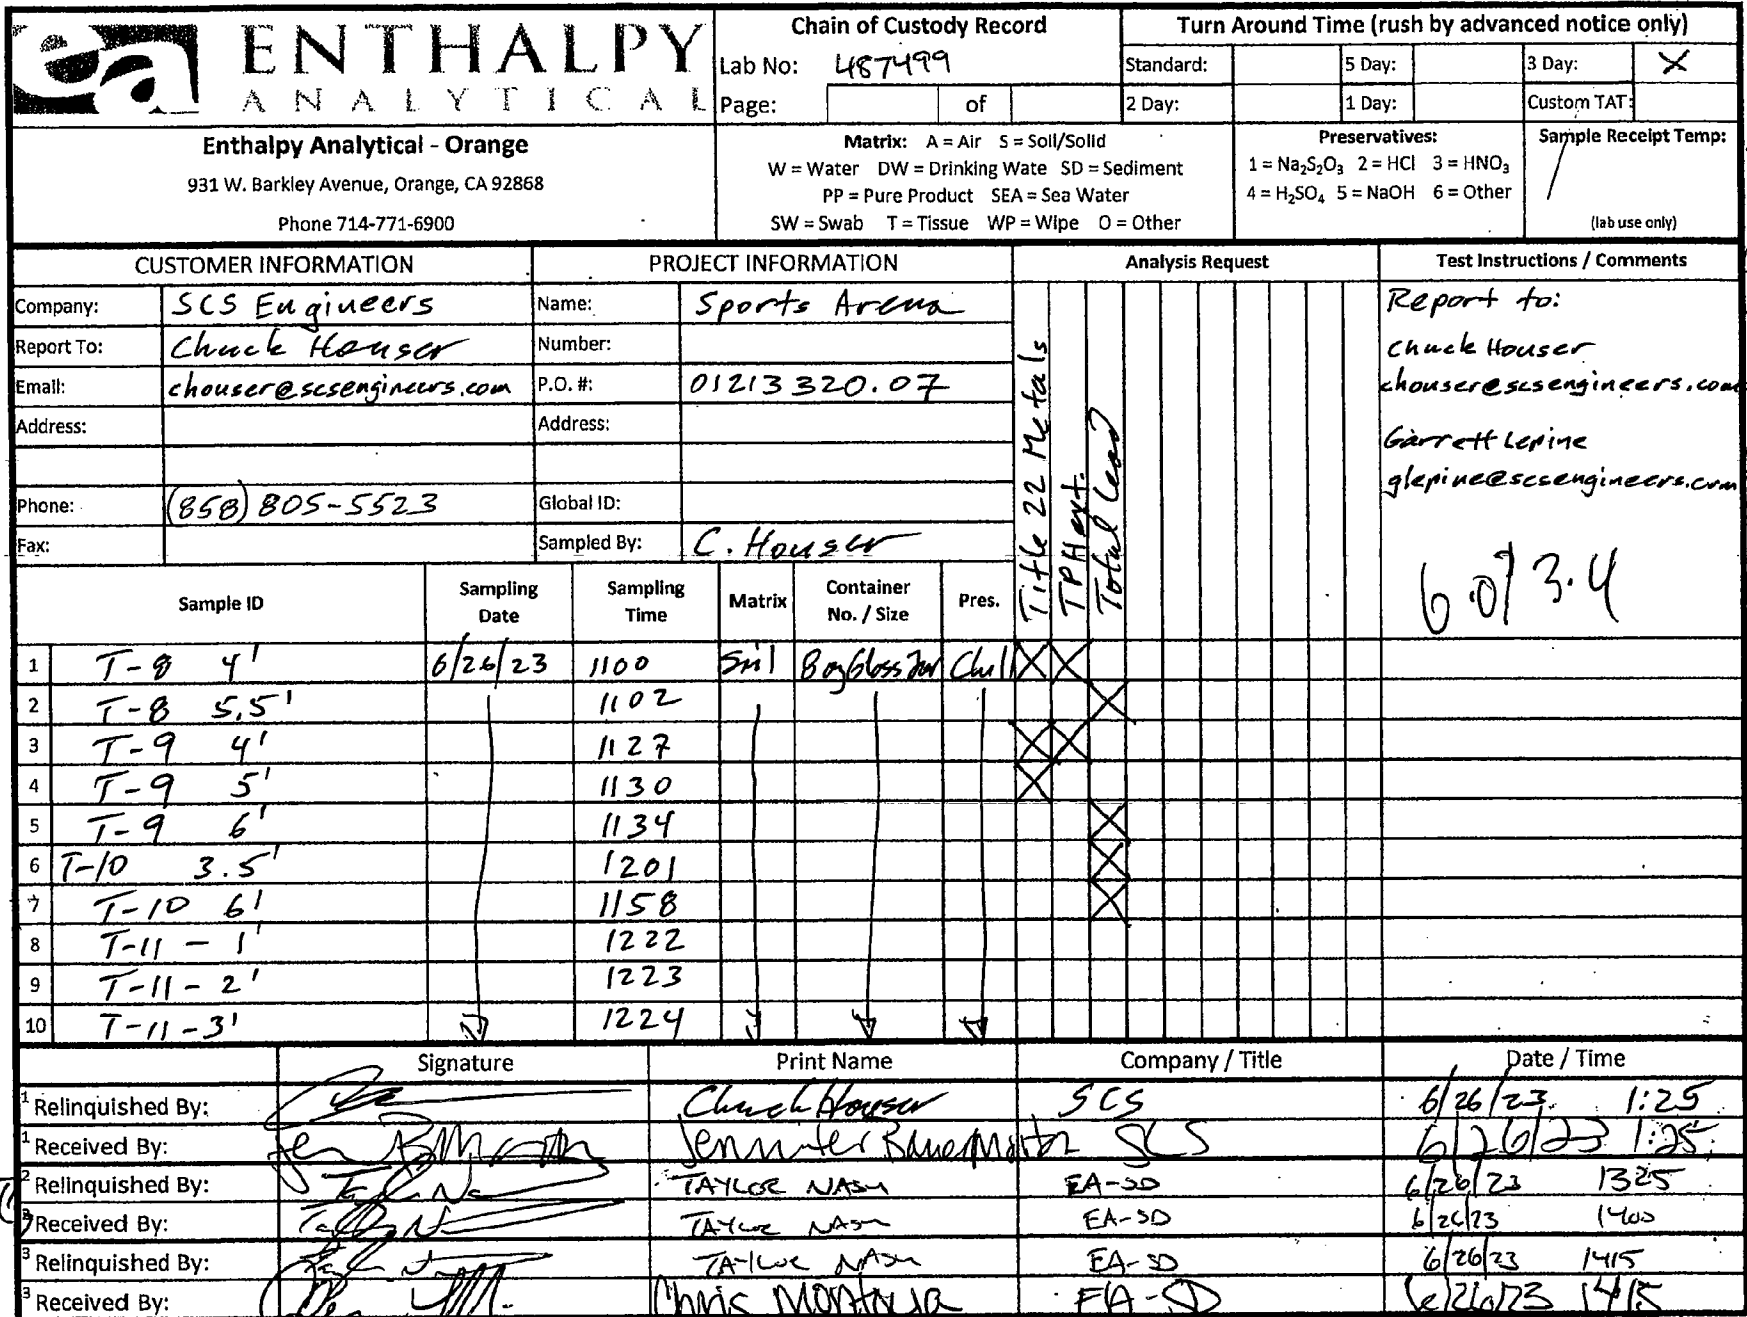 ea ENTHALPY
ANALYTICAL
Chain of Custody Record
Lab No: 487499
Page: of
Turn Around Time (rush by advanced notice only)
Standard: 5 Day: 3 Day: X
2 Day: 1 Day: Custom TAT:
Enthalpy Analytical - Orange
931 W. Barkley Avenue, Orange, CA 92868
Phone 714-771-6900
Matrix: A = Air S = Soil/Solid
W = Water DW = Drinking Wate SD = Sediment
PP = Pure Product SEA = Sea Water
SW = Swab T = Tissue WP = Wipe O = Other
Preservatives:
1 = Na₂S₂O₃ 2 = HCl 3 = HNO₃
4 = H₂SO₄ 5 = NaOH 6 = Other
Sample Receipt Temp:
(lab use only)
CUSTOMER INFORMATION PROJECT INFORMATION Analysis Request Test Instructions / Comments
Company: SCS Engineers Name: Sports Arena
Report To: Chuck Houser Number:
Email: chouser@scsengineers.com P.O. #: 01213320.07
Address: Address:
Phone: (858) 805-5523 Global ID:
Fax: Sampled By: C. Houser
Title 22 Metals
TPHext.
Total Lead
Report to:
Chuck Houser
chouser@scsengineers.com
Garrett Lepine
glepine@scsengineers.com
6.0/3.4
Sample ID Sampling Date Sampling Time Matrix Container No. / Size Pres.
1 T-8 4' 6/26/23 1100 Soil 8oz Glass Jar Chill X X
2 T-8 5.5' 1102 X
3 T-9 4' 1127 X X
4 T-9 5' 1130 X
5 T-9 6' 1134 X
6 T-10 3.5' 1201 X
7 T-10 6' 1158 X
8 T-11 - 1' 1222
9 T-11 - 2' 1223
10 T-11 - 3' 1224
Signature Print Name Company / Title Date / Time
1 Relinquished By: Chuck Houser SCS 6/26/23 1:25
1 Received By: Jennifer SCS 6/26/23 1:25
2 Relinquished By: TAYLOR NASH EA-SD 6/26/23 1325
2 Received By: TAYLOR NASH EA-SD 6/26/23 1400
3 Relinquished By: TAYLOR NASH EA-SD 6/26/23 1415
3 Received By: Chris Montoya EA-SD 6/26/23 1415